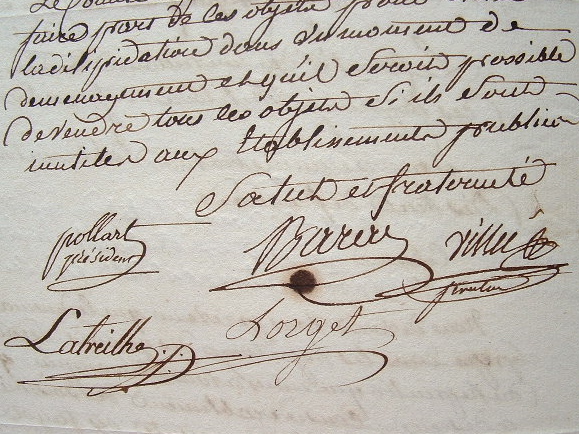 faire part de ces objets pour
la dilapidation dans un moment de
demenagement et qu'il seroit possible
de vendre tous les objets si ils sont
inutiles aux Etablissements publics
Salut et fraternité
pollart
président
Barrau
Villié
Latreilhe
Lorget